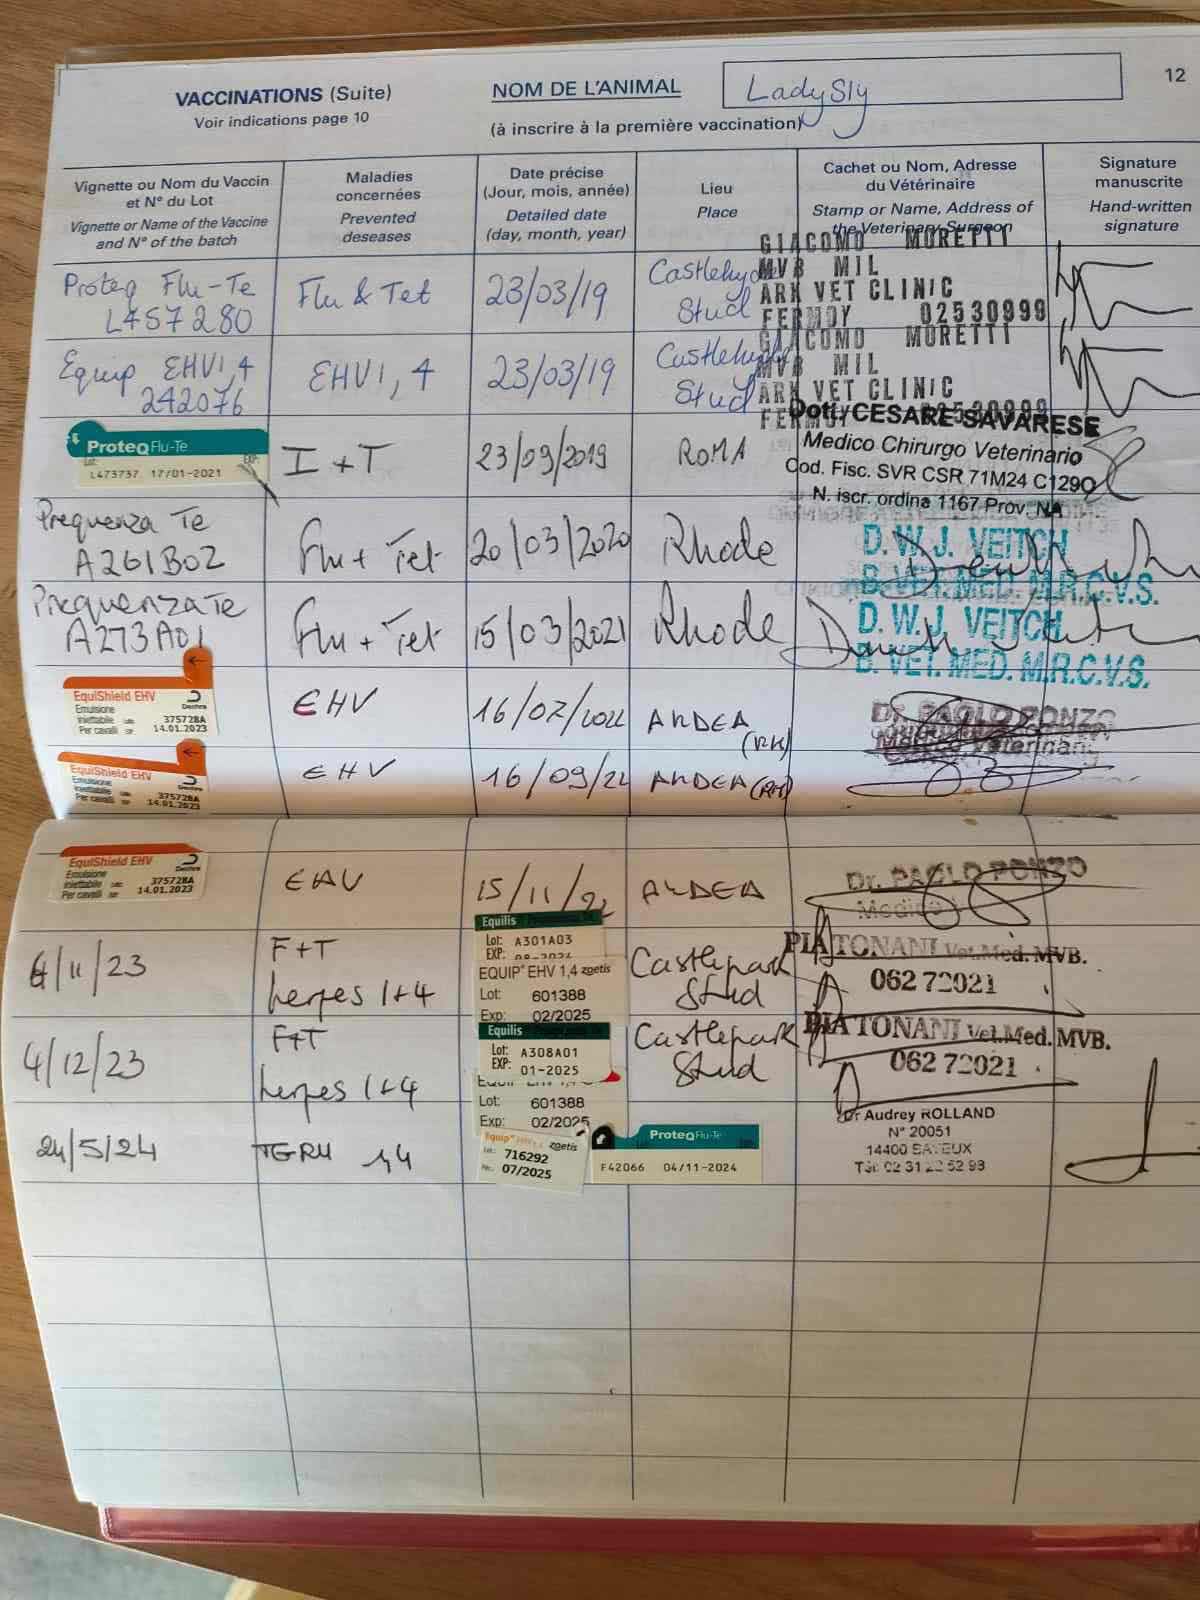 VACCINATIONS (Suite)
Voir indications page 10
NOM DE L'ANIMAL
(à inscrire à la première vaccination)
Lady Sly
12
Vignette ou Nom du Vaccin
et N° du Lot
Vignette or Name of the Vaccine
and N° of the batch
Maladies
concernées
Prevented
deseases
Date précise
(Jour, mois, année)
Detailed date
(day, month, year)
Lieu
Place
Cachet ou Nom, Adresse
du Vétérinaire
Stamp or Name, Address of
the Veterinary Surgeon
Signature
manuscrite
Hand-written
signature
Proteq Flu-Te
L457280
Flu & Tet
23/03/19
Castlehyde
Stud
GIACOMO MORETTI
MVB MIL
ARK VET CLINIC
FERMOY 02530999
Equip EHV1,4
242076
EHV1, 4
23/03/19
Castlehyde
Stud
GIACOMO MORETTI
MVB MIL
ARK VET CLINIC
FERMOY 02530999
ProteqFlu-Te
Lot
EXP.
L473737 17/01-2021
I + T
23/09/2019
ROMA
Dott. CESARE SAVARESE
Medico Chirurgo Veterinario
Cod. Fisc. SVR CSR 71M24 C129O
N. iscr. ordine 1167 Prov. NA
Prequenza Te
A261B02
Flu + Tet
20/03/2020
Rhode
D. W. J. VEITCH
B. VET. MED. M.R.C.V.S.
PrequenzaTe
A273A01
Flu + Tet
15/03/2021
Rhode
D. W. J. VEITCH
B. VET. MED. M.R.C.V.S.
EquiShield EHV
Emulsione
iniettabile
Per cavalli
375728A
14.01.2023
Dechra
EHV
16/07/2022
ARDEA
(RM)
Dr. PAOLO PONZO
Medico Veterinario
EquiShield EHV
Emulsione
iniettabile
Per cavalli
375728A
14.01.2023
Dechra
EHV
16/09/22
ARDEA (RM)
EquiShield EHV
Emulsione
iniettabile
Per cavalli
375728A
14.01.2023
Dechra
EHV
15/11/22
ARDEA
Dr. PAOLO PONZO
Medico
4/11/23
F+T
herpes 1+4
Equilis
Lot: A301A03
EXP:
EQUIP® EHV 1,4 zoetis
Lot: 601388
Exp: 02/2025
Castlepark
Stud
PIA TONANI Vet.Med. MVB.
062 72021
4/12/23
F+T
herpes 1+4
Equilis
Lot: A308A01
EXP: 01-2025
Lot: 601388
Exp: 02/2025
Castlepark
Stud
PIA TONANI Vet.Med. MVB.
062 72021
24/5/24
TGRH 1,4
Equip® zoetis
716292
07/2025
ProteqFlu-Te
F42066 04/11-2024
Dr Audrey ROLLAND
N° 20051
14400 BAYEUX
Tél: 02 31 22 52 93